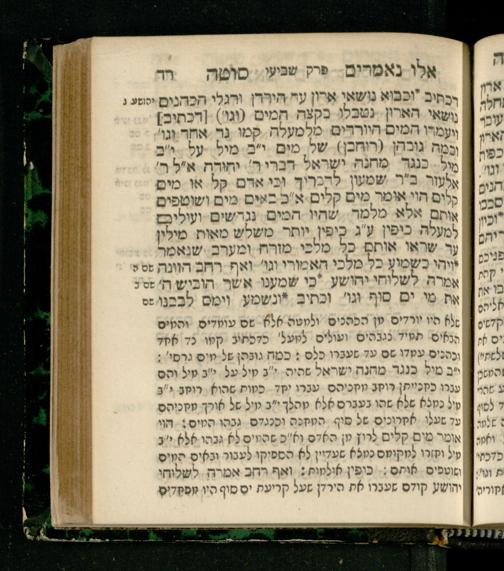 אלו נאמרים פרק שביעי סוטה רח
דכתיב *וכבוא נושאי ארון עד הירדן ורגלי הכהנים יהושע ג
נושאי הארון נטבלו בקצה המים (וגו') [דכתיב]
ויעמדו המים היורדים מלמעלה קמו נד אחד וגו'
וכמה גובהן (רוחבן) של מים י"ב מיל על י"ב
מיל כנגד מחנה ישראל דברי ר' יהודה א"ל ר'
אלעזר ב"ר שמעון לדבריך וכי אדם קל או מים
קלים הוי אומר מים קלים א"כ באים מים ושוטפים
אותם אלא מלמד שהיו המים נגדשים ועולים
למעלה כיפין ע"ג כיפין יותר משלש מאות מילין
עד שראו אותם כל מלכי מזרח ומערב שנאמר
*ויהי כשמוע כל מלכי האמורי וגו' ואף רחב הזונה שם ה
אמרה לשלוחי יהושע *כי שמענו אשר הוביש ה' שם ב
את מי ים סוף וגו' וכתיב *ונשמע וימס לבבנו שם
שלא היו יורדים מן הכהנים ולמטה אלא שם עומדים והמים
הבאים תמיד נגבהים ועולים למעל' כדכתיב קמו נד אחד
וכהנים עמדו שם עד שעברו כלם : כמה גובהן של מים גרסי' :
י"ב מיל כנגד מחנה ישראל שהיה י"ב מיל על י"ב מיל והם
עברו כחנייתן רוחב מחניהם עברו יחד כמות שהוא רוחב י"ב
מיל נמצא שלא שהו בעברם אלא מהלך י"ב מיל של אורך מחניהם
עד שעלו אחרונים של סוף המחנה וכנגדם גבהו המים : הוי
אומר מים קלים לרוץ מן האדם וא"כ שהמים לא גבהו אלא י"ב
מיל וחזרו למקומם נמצא שעדיין לא הספיקו לעבור ובאים המים
ושוטפים אותם : כיפין אולמות : ואף רחב אמרה לשלוחי
יהושע קודם שעברו את הירדן שעל קריעת ים סוף היו מפחדים